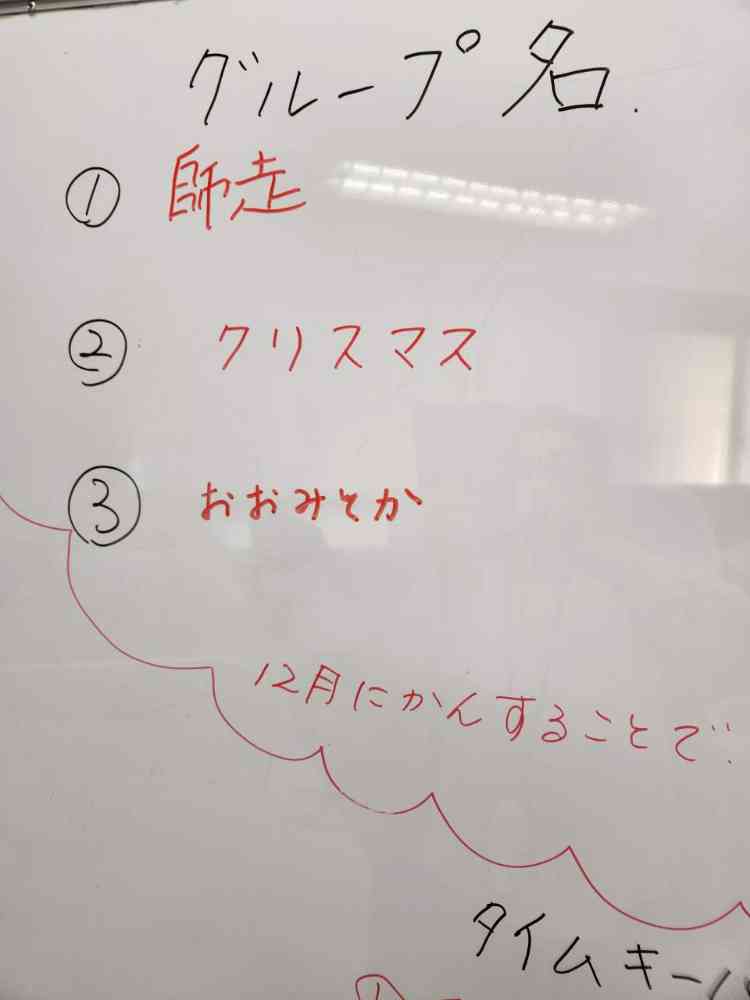 グループ名.
① 師走
② クリスマス
③ おおみそか
12月にかんすることで
タイムキー
①